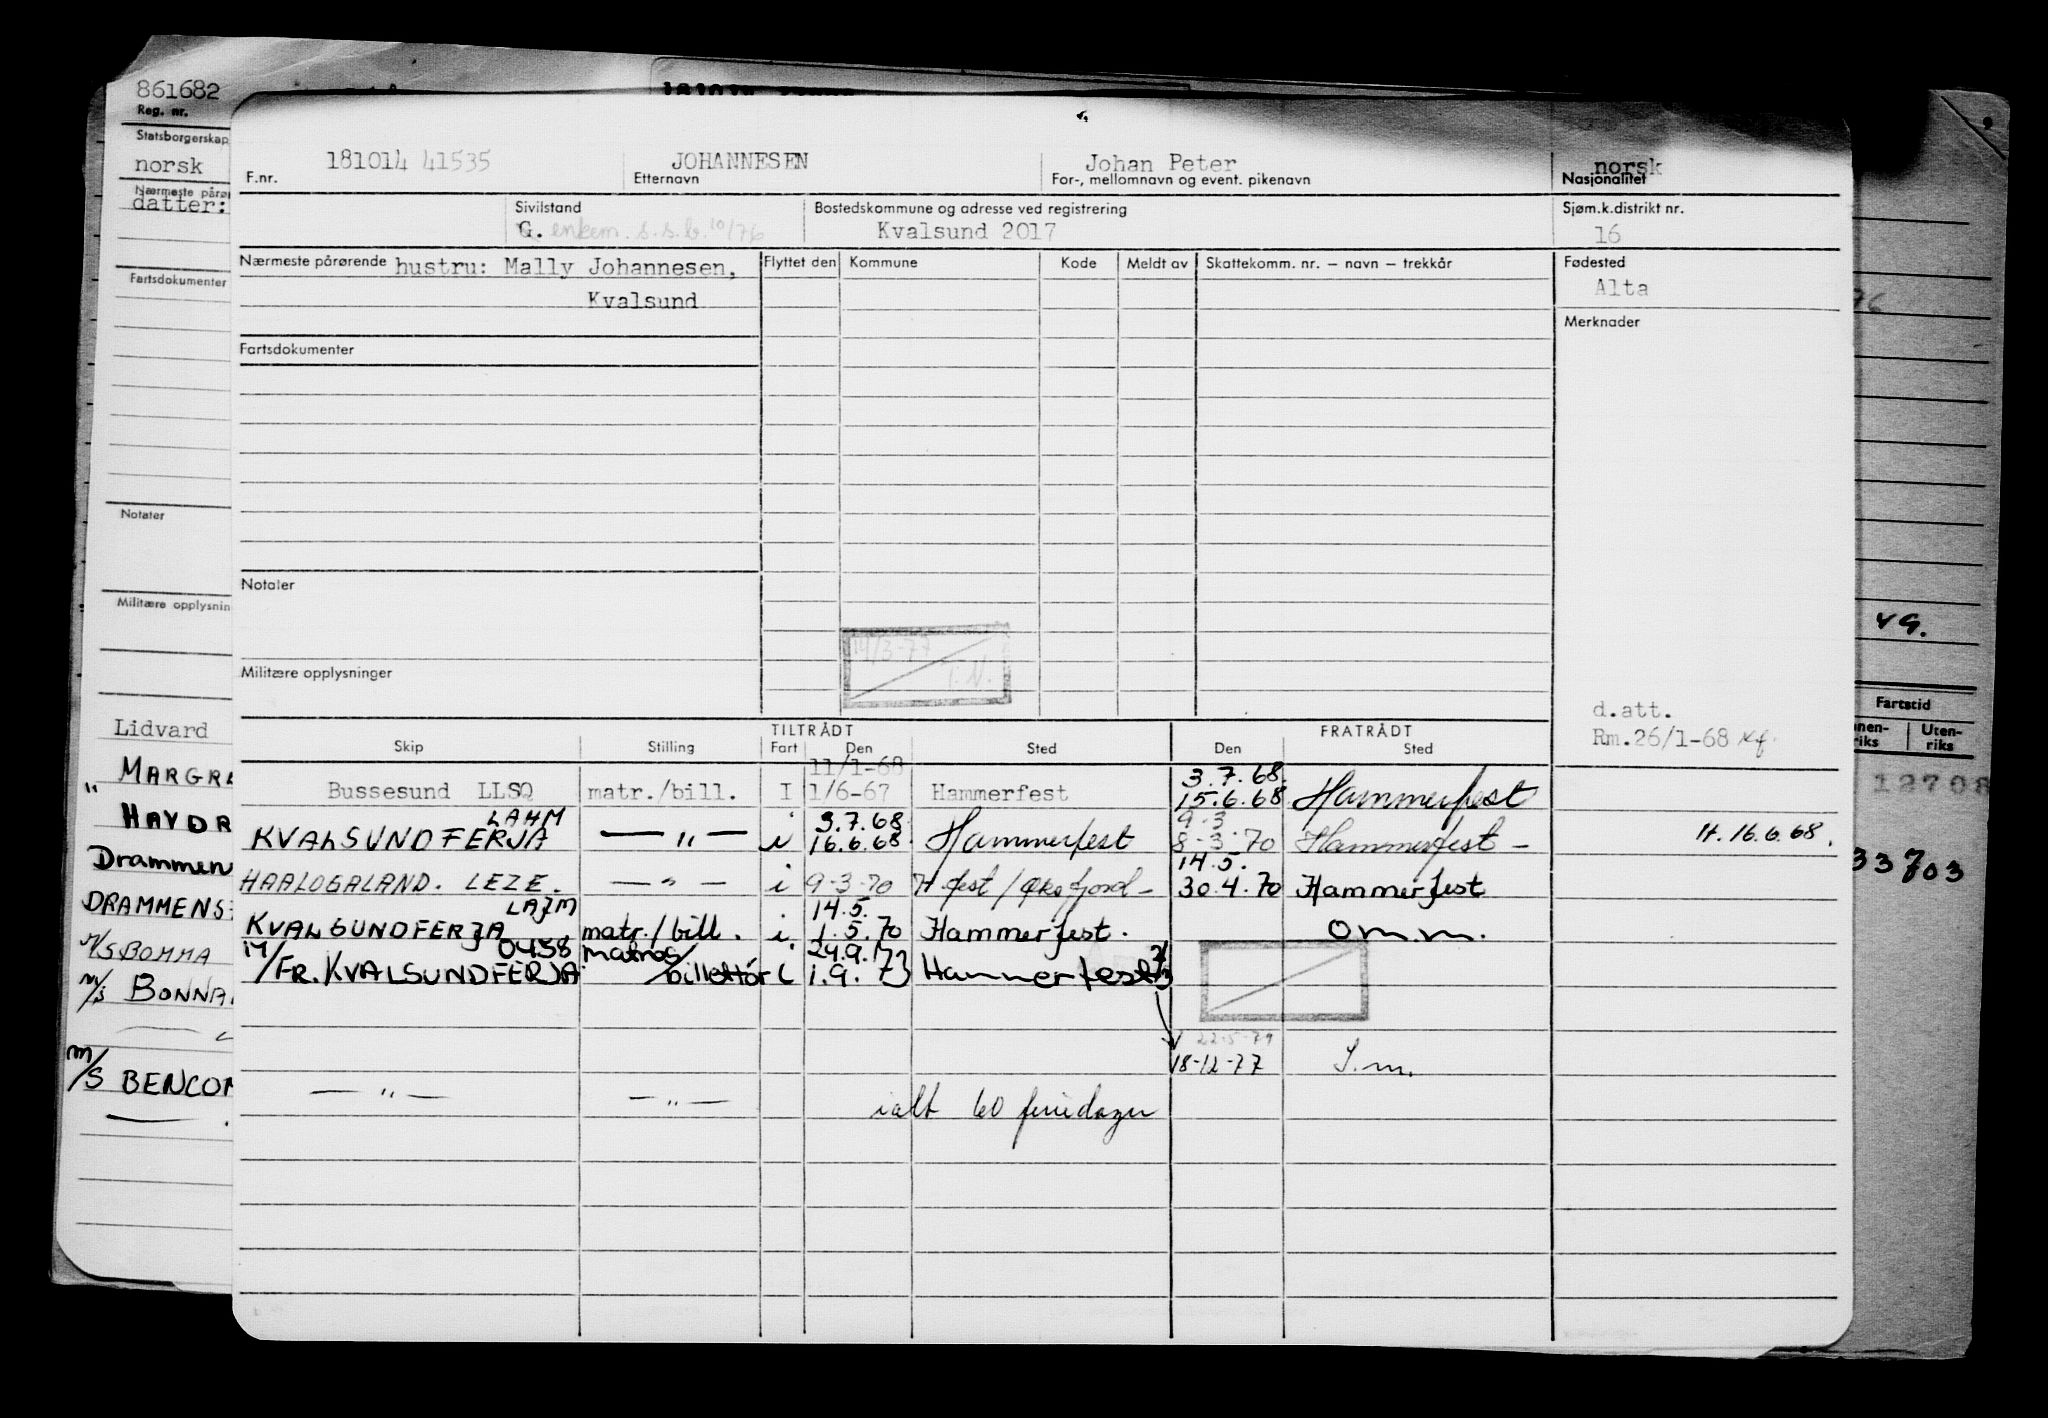 861682
Reg. nr.
Statsborgerskap
norsk
datter:
Fartsdokumenter
Notater
Militære opplysnin
Lidvard
" MARGRE
HAVDR
Drammen
DRAMMENS
M/S BOMMA
M/S BONNA
M/S BENCO
181014 41535 JOHANNESEN Johan Peter norsk
F.nr. Etternavn For-, mellomnavn og event. pikenavn Nasjonalitet
Sivilstand Bostedskommune og adresse ved registrering Sjøm.k.distrikt nr.
G. enkem. s.s.b. 10/76 Kvalsund 2017 16
Nærmeste pårørende hustru: Mally Johannesen, Flyttet den Kommune Kode Meldt av Skattekomm. nr. – navn – trekkår Fødested
Kvalsund Alta
Merknader
Fartsdokumenter
Notater
14/3-77
T.N.
Militære opplysninger
d.att.
Rm.26/1-68
TILTRÅDT FRATRÅDT
Skip Stilling Fart Den Sted Den Sted
11/1-68 3.7.68.
Bussesund LLSQ matr./bill. I 1/6-67 Hammerfest 15.6.68 Hammerfest
LAHM 3.7.68. 9-3
KVALSUNDFERJA — " — i 16.6.68. Hammerfest 8-3-70 Hammerfest – H. 16.6.68.
14.5.
HAALOGALAND. LEZE. — " — i 9-3-70 H.fest/Øksfjord – 30.4.70 Hammerfest
LAJM 14.5.
KVALSUNDFERJA matr./bill. i 1.5.70 Hammerfest. o m.m.
M/FR. KVALSUNDFERJA 0458 matros/billettør i 24.9.73 1.9.73 Hammerfest
22-5-79
18-12-77 S.m.
— " — — " — ialt 60 feriedager
VG.
Fartstid
nen-riks Uten-riks
12708
33703